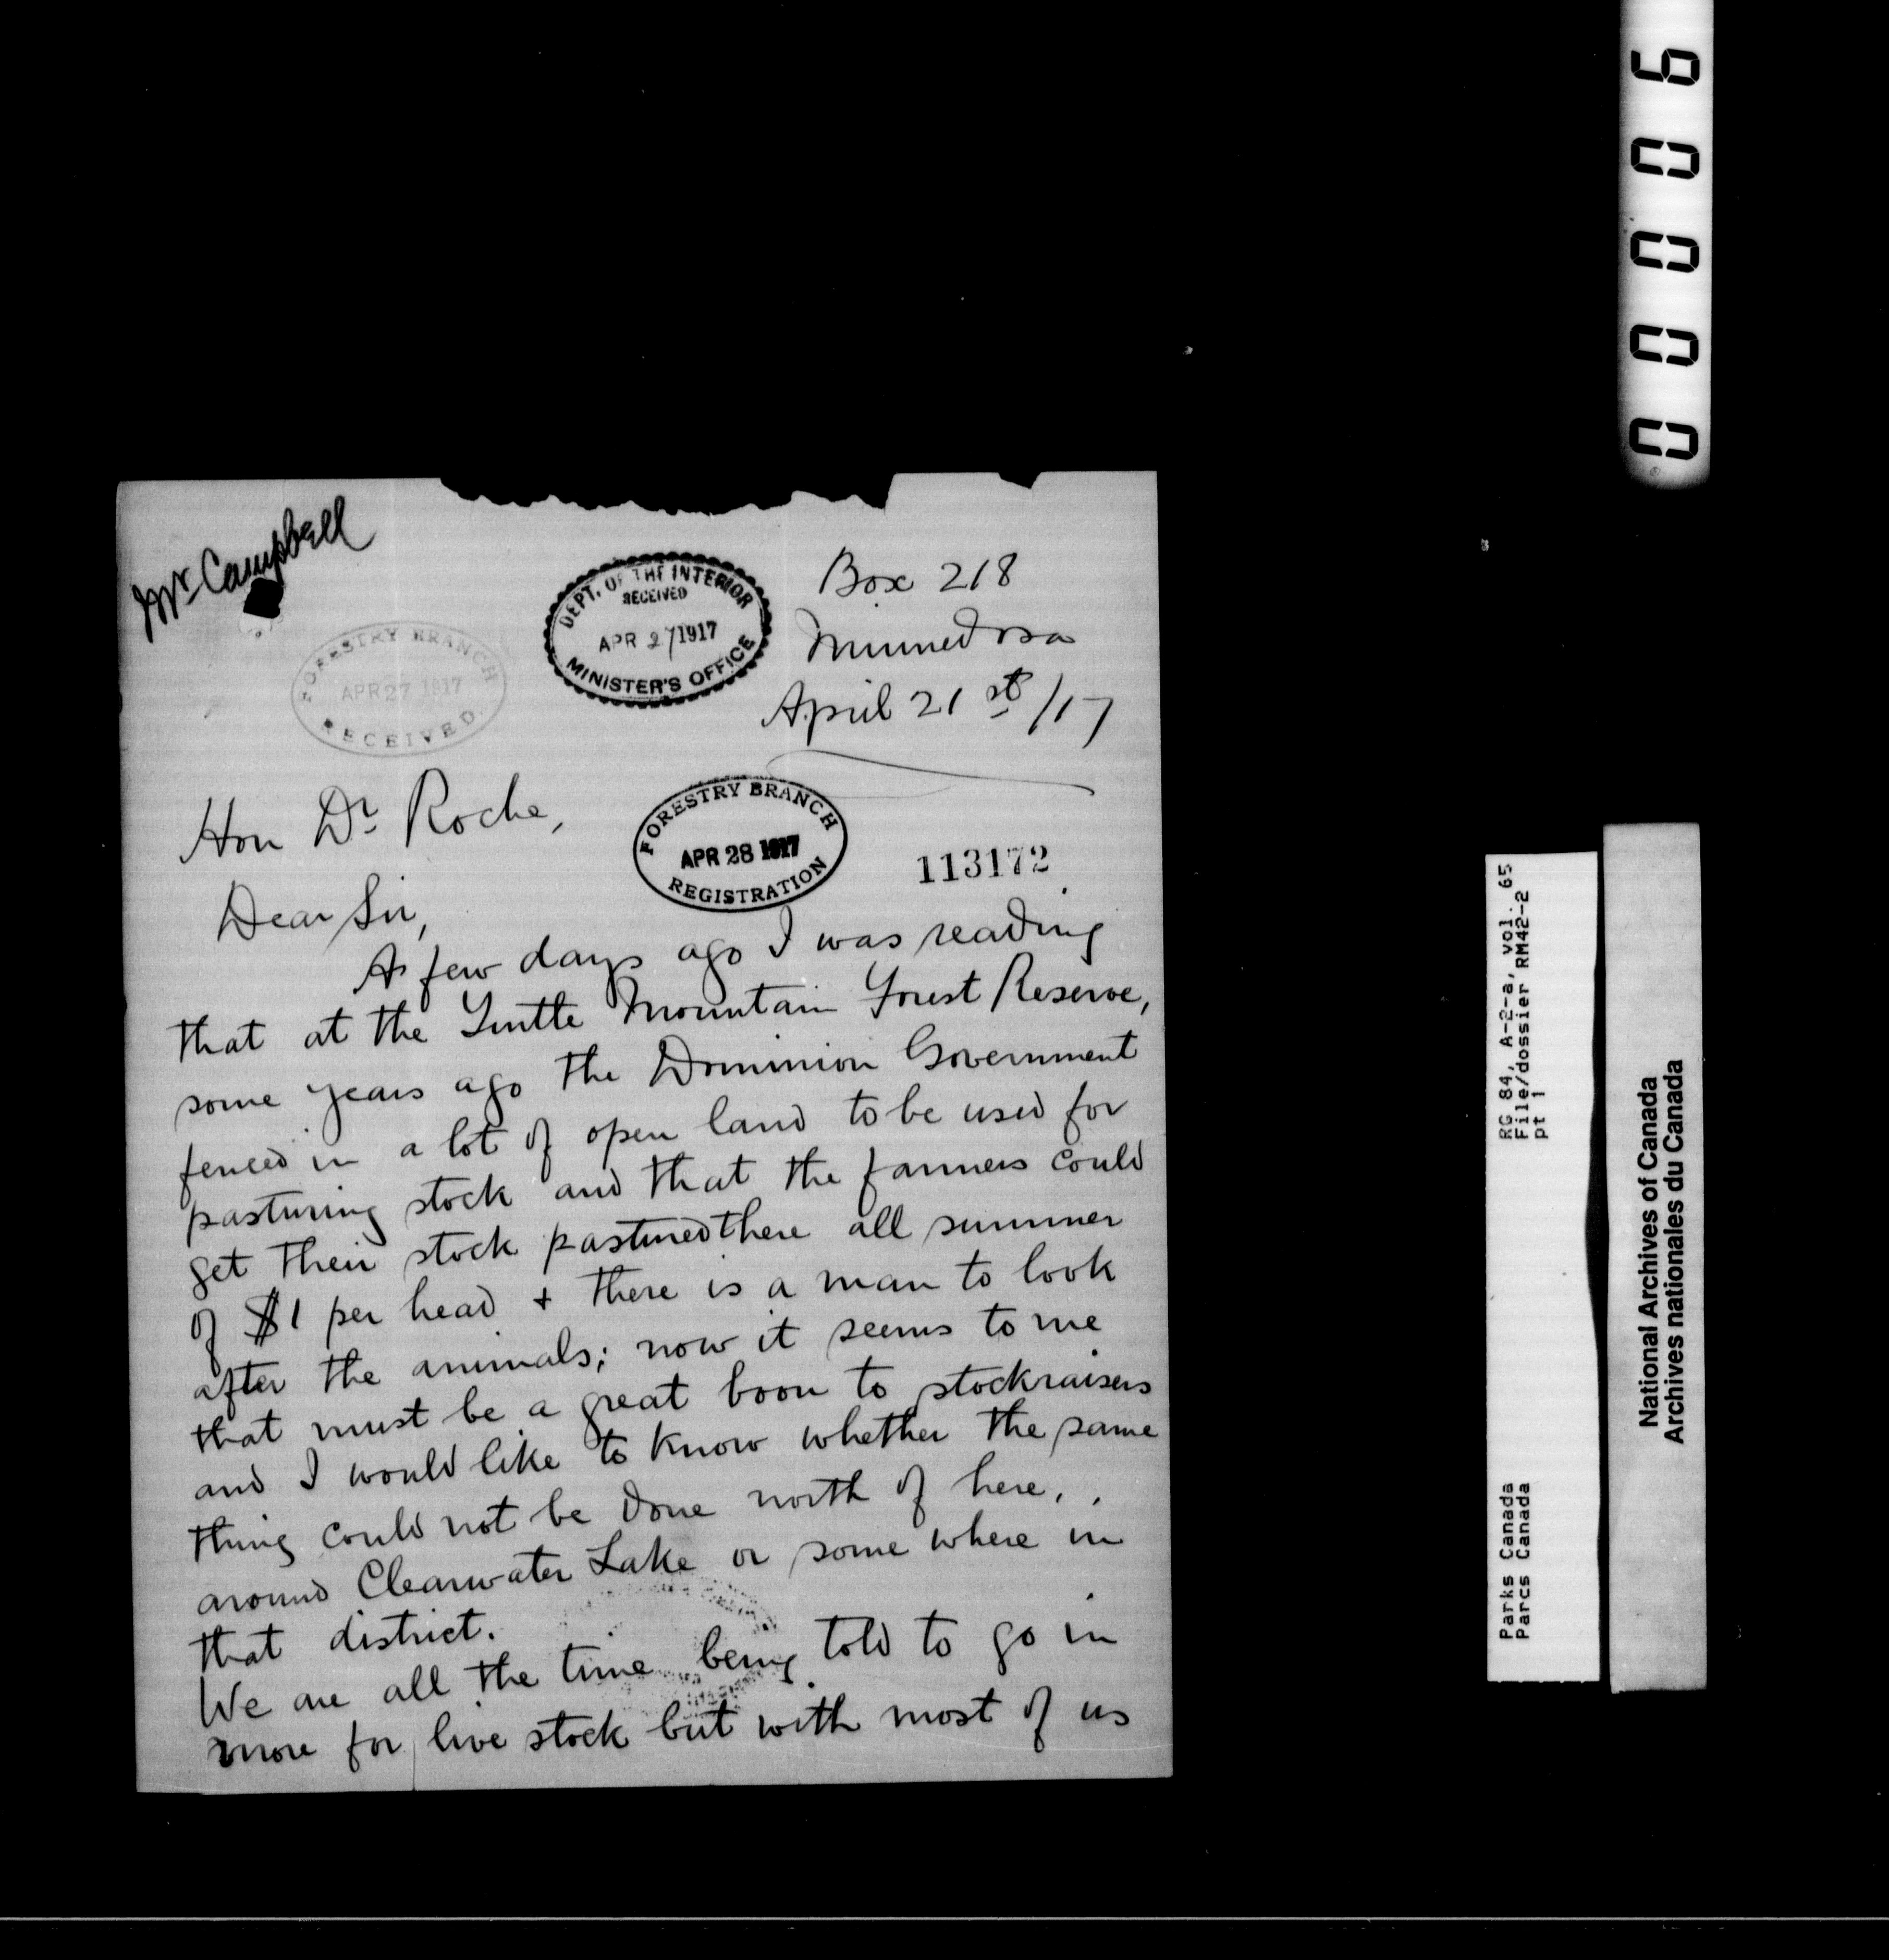 Mr Campbell
DEPT. OF THE INTERIOR
RECEIVED
APR 27 1917
MINISTER'S OFFICE
FORESTRY BRANCH
APR 27 1917
RECEIVED
Box 218
Minnedosa
April 21st/17
Hon Dr Roche,
FORESTRY BRANCH
APR 28 1917
REGISTRATION
113172
Dear Sir,
A few days ago I was reading
that at the Turtle Mountain Forest Reserve,
some years ago the Dominion Government
fenced in a lot of open land to be used for
pasturing stock and that the farmers could
get their stock pastured there all summer
of $1 per head + there is a man to look
after the animals; now it seems to me
that must be a great boon to stockraisers
and I would like to know whether the same
thing could not be done north of here,
around Clearwater Lake or some where in
that district.
We are all the time being told to go in
more for live stock but with most of us
00006
RG 84, A-2-a, vol. 65
File/dossier RM42-2
pt 1
Parks Canada
Parcs Canada
National Archives of Canada
Archives nationales du Canada